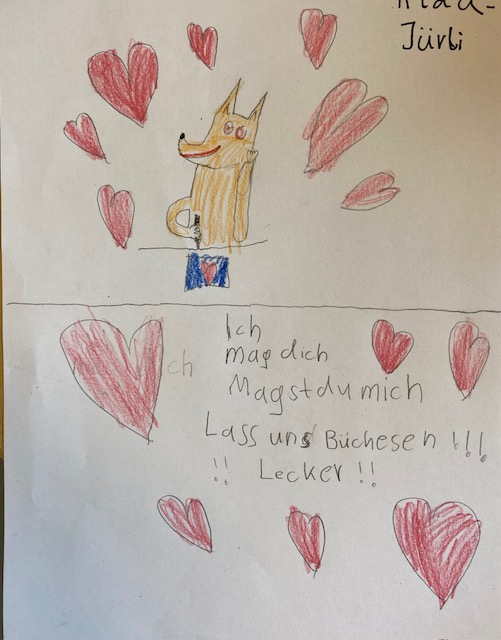 Jürbi
Ich
mag dich
Magst du mich
Lass uns Büchesen !!!
!! Lecker !!